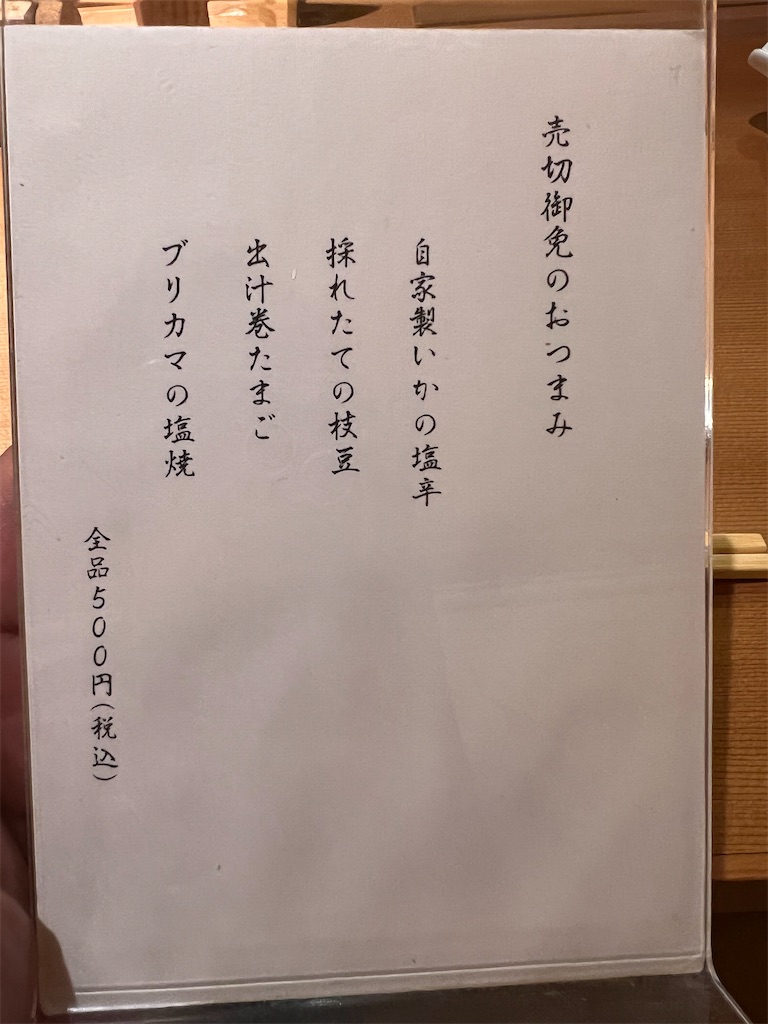 売切御免のおつまみ
自家製いかの塩辛
採れたての枝豆
出汁巻たまご
ブリカマの塩焼
全品500円(税込)